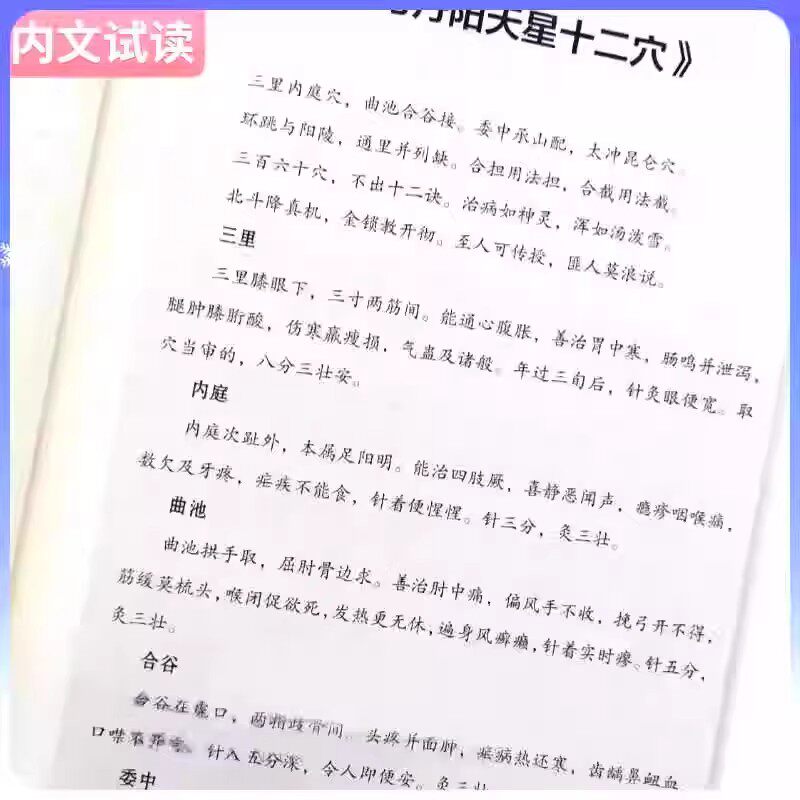 内文试读
阳天星十二穴》
三里内庭穴，曲池合谷接。委中承山配，太冲昆仑穴。
环跳与阳陵，通里并列缺。合担用法担，合截用法截。
三百六十穴，不出十二诀。治病如神灵，浑如汤泼雪。
北斗降真机，金锁教开彻。至人可传授，匪人莫浪说。
三里
三里膝眼下，三寸两筋间。能通心腹胀，善治胃中寒，肠鸣并泄泻，
腿肿膝胻酸，伤寒羸瘦损，气蛊及诸般。年过三旬后，针灸眼便宽。取
穴当审的，八分三壮安。
内庭
内庭次趾外，本属足阳明。能治四肢厥，喜静恶闻声，瘾疹咽喉痛，
数欠及牙疼，疟疾不能食，针着便惺惺。针三分，灸三壮。
曲池
曲池拱手取，屈肘骨边求。善治肘中痛，偏风手不收，挽弓开不得，
筋缓莫梳头，喉闭促欲死，发热更无休，遍身风癣癞，针着实时瘳。针五分，
灸三壮。
合谷
合谷在虎口，两指歧骨间。头疼并面肿，疟病热还寒，齿龋鼻衄血
口噤不开言。针入五分深，令人即便安。灸三壮
委中